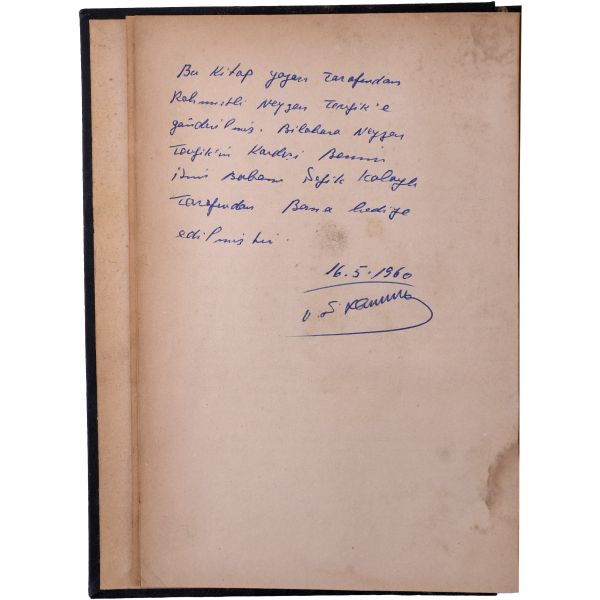 Bu Kitap yazarı Tarafından
Rahmetli Neyzen Tevfik'e
gönderilmiş. Bilahara Neyzen
Tevfik'in Kardeşi Benim
Babam Şefik Kolaylı
Tarafından Bana hediye
edilmiştir.
16.5.1960